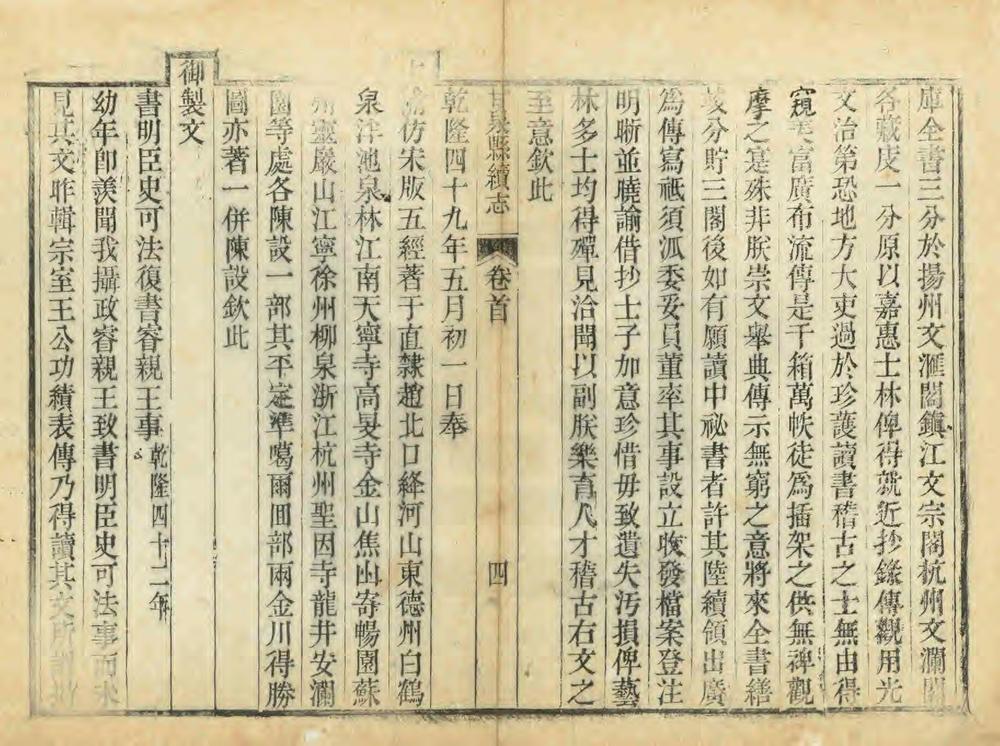 庫全書三分於揚州文滙閣鎭江文宗閣杭州文瀾閣
各藏庋一分原以嘉惠士林俾得就近抄錄傳觀用光
文治第恐地方大吏過於珍護讀書稽古之士無由得
窺 富廣布流傳是千箱萬帙徒爲插架之供無裨觀
摩之寔殊非朕崇文舉典傳示無窮之意將來全書繕
竣分貯三閣後如有願讀中祕書者許其陸續領出廣
爲傳寫祗須派委妥員董率其事設立收發檔案登注
明晰並曉諭借抄士子加意珍惜毋致遺失汚損俾藝
林多士均得殫見洽聞以副朕樂育人才稽古右文之
至意欽此
甘泉縣續志 卷首 四
乾隆四十九年五月初一日奉
諭仿宋版五經著于直隸趙北口絳河山東德州白鶴
泉泮池泉林江南天寧寺高旻寺金山焦山寄暢園蘇
州靈巖山江寧徐州柳泉浙江杭州聖因寺龍井安瀾
園等處各陳設一部其平定準噶爾囬部兩金川得勝
圖亦著一併陳設欽此
御製文
書明臣史可法復書睿親王事乾隆四十二年
幼年卽羨聞我攝政睿親王致書明臣史可法事而未
見其文昨輯宗室王公功績表傳乃得讀其文所